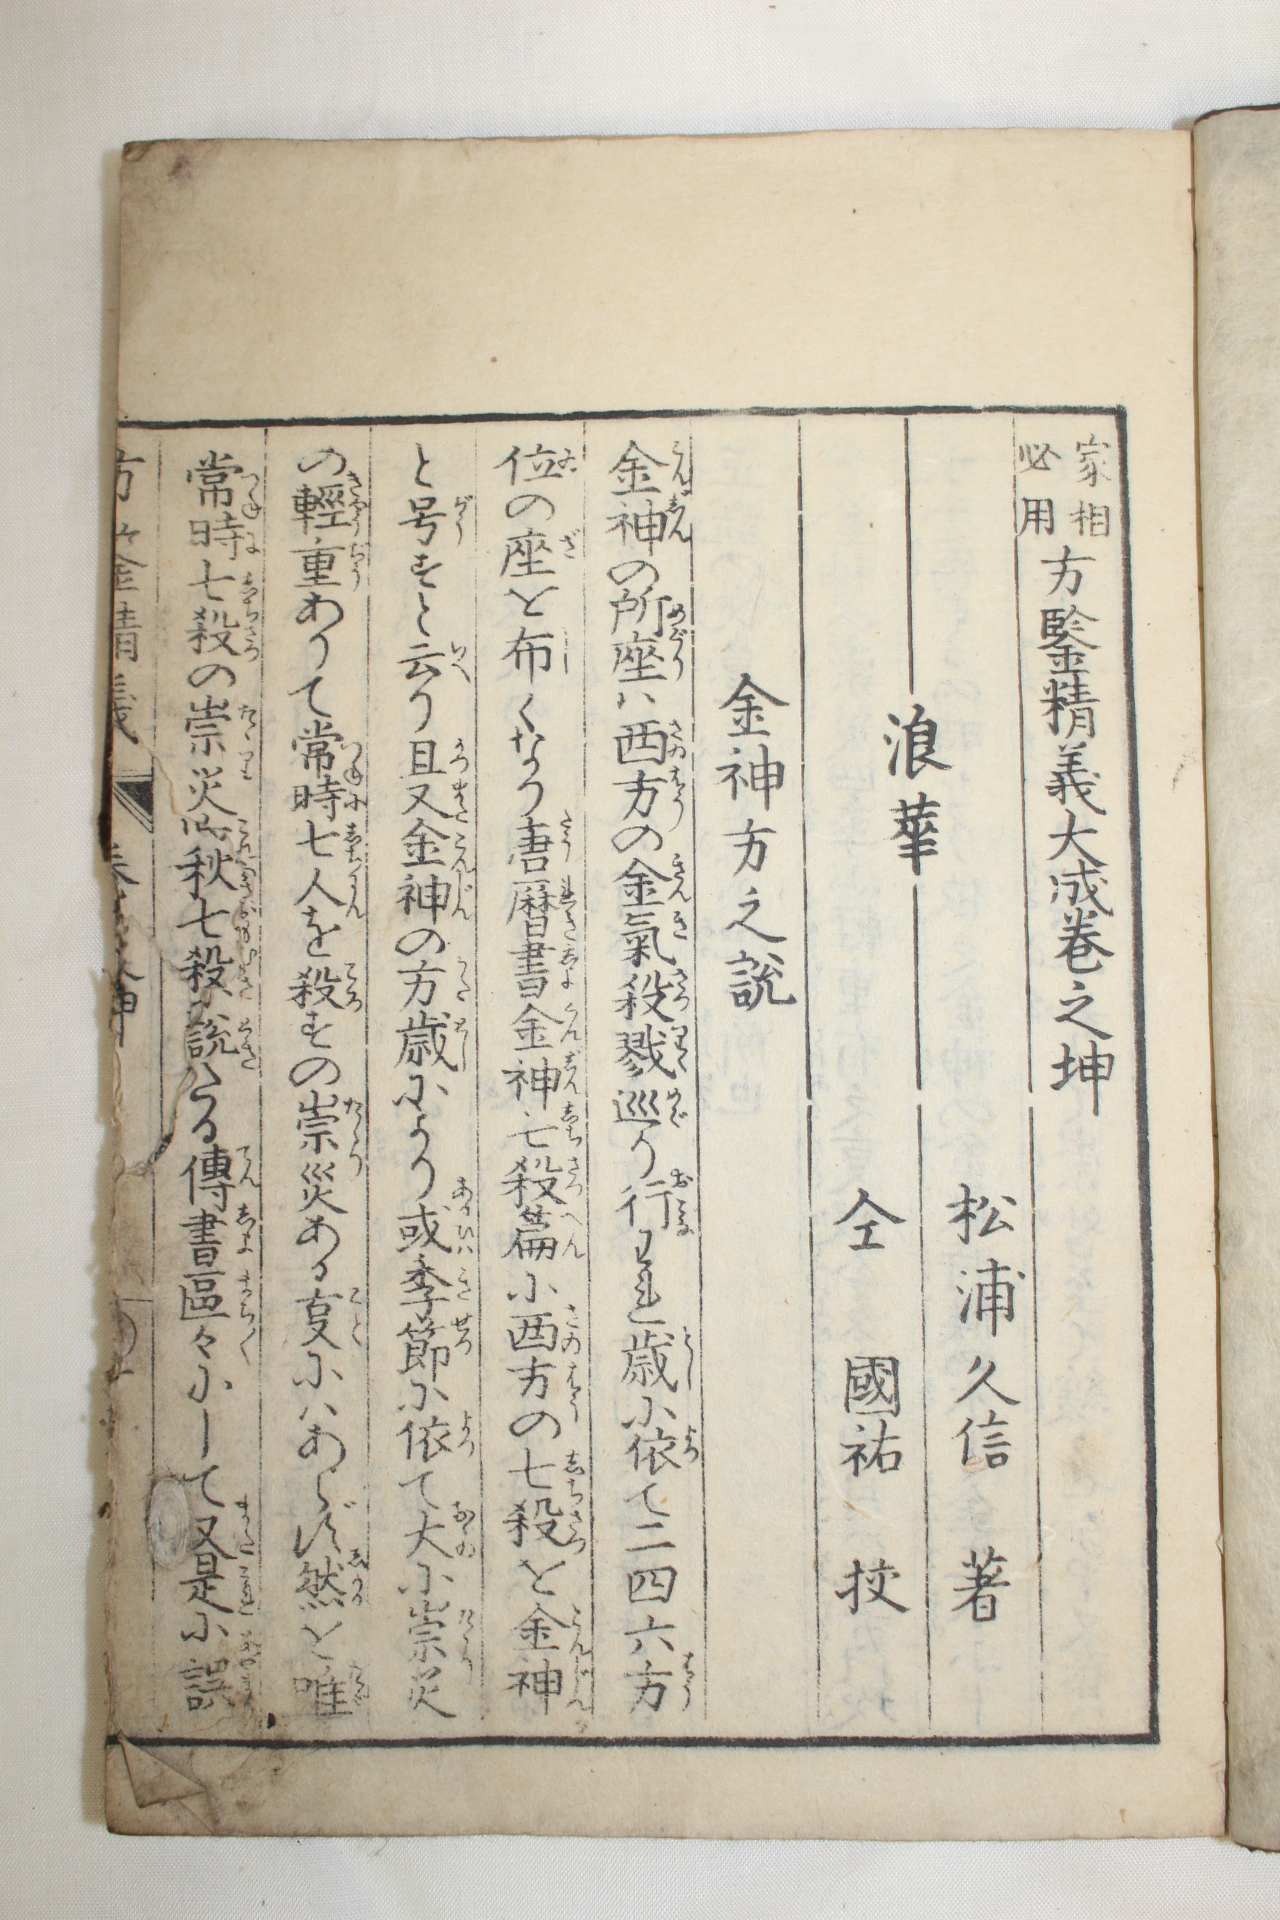 家相必用 方鑒精義大成巻之坤
松浦久信 著
浪華
仝 國祐 挍
金神方之説
金神の所座ハ西方の金氣殺戮巡り行われ歳小依て二四六方
位の座を布くなり唐暦書金神七殺篇小西方の七殺を金神
と号すと云り且又金神の方歳により或季節小依て大小崇災
の輕重ありて常時七人を殺すの崇災ある叓にハあらず然を唯
常時七殺の崇災 秋七殺 説たる傳書區々小して又是小誤